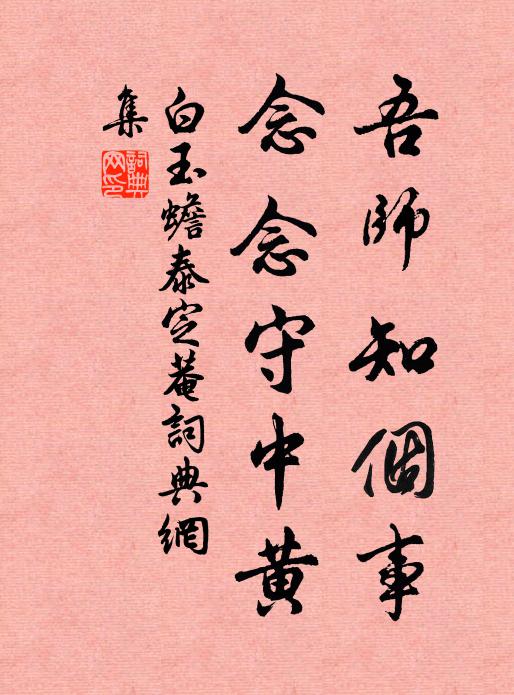 吾師知個事
念念守中黄
白玉蟾泰定菴詞典網
集
詞典網印